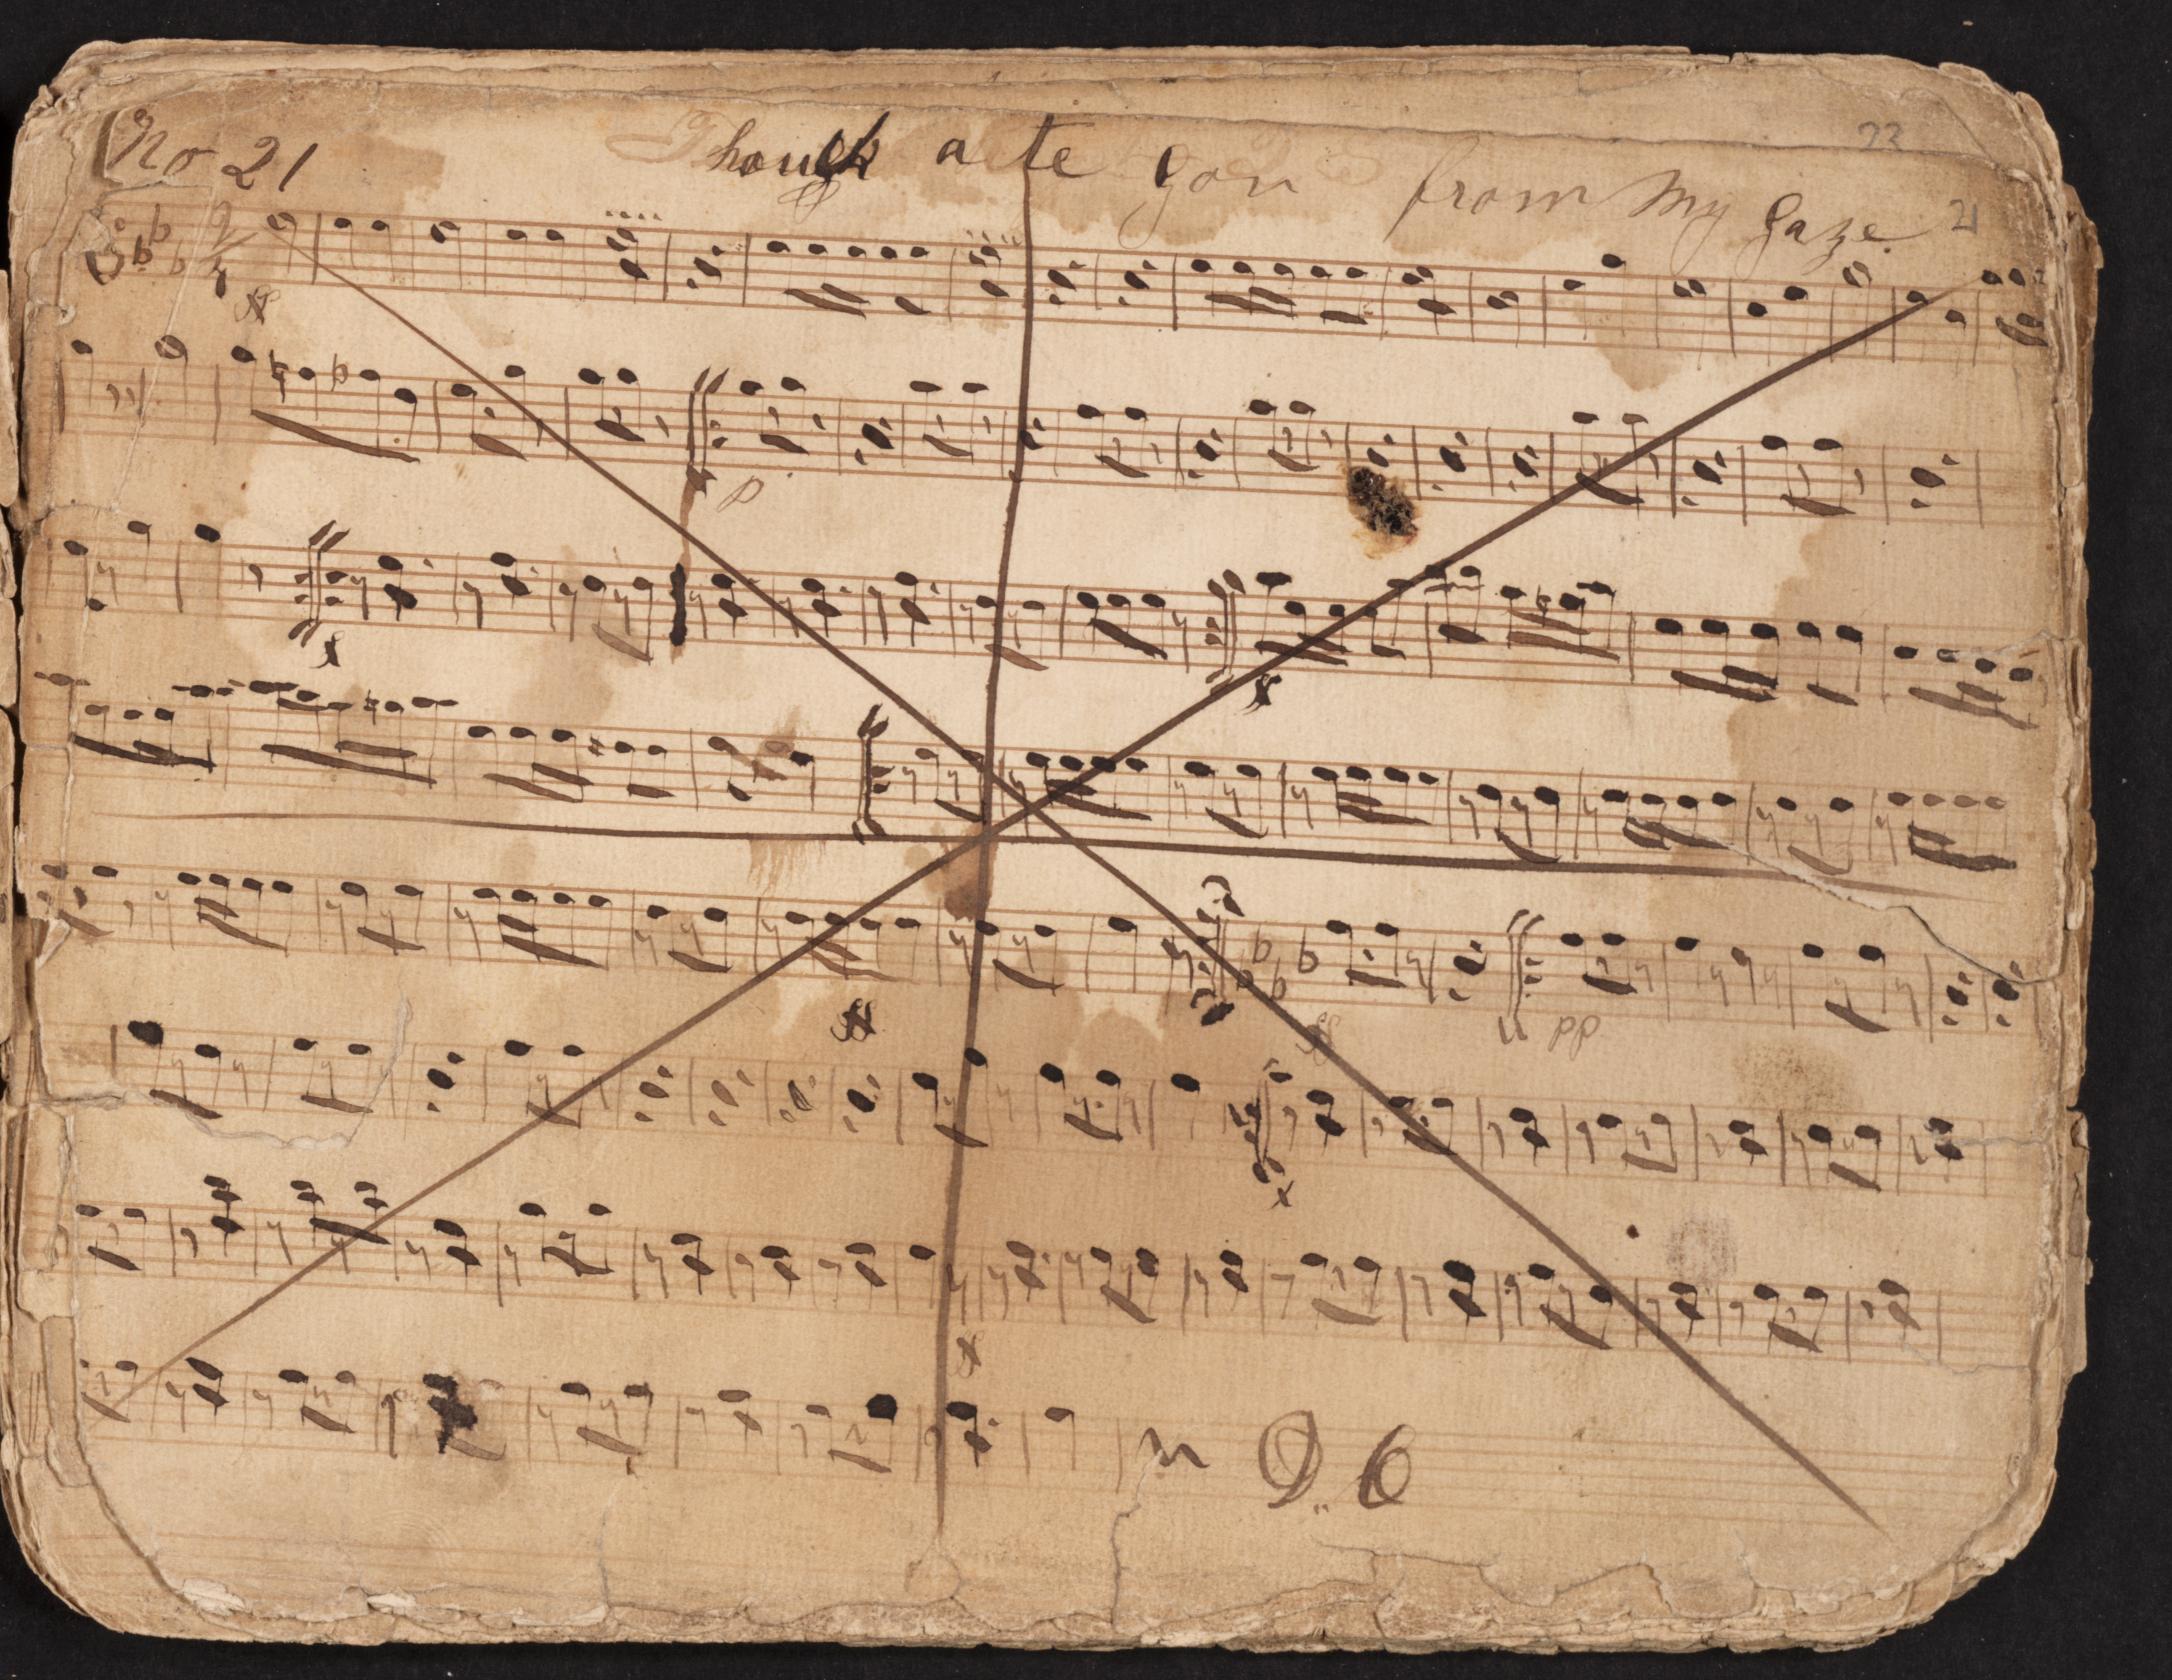 No 21 Though a te you from My Gaze.
22
21
2/4
p
pp
D.C